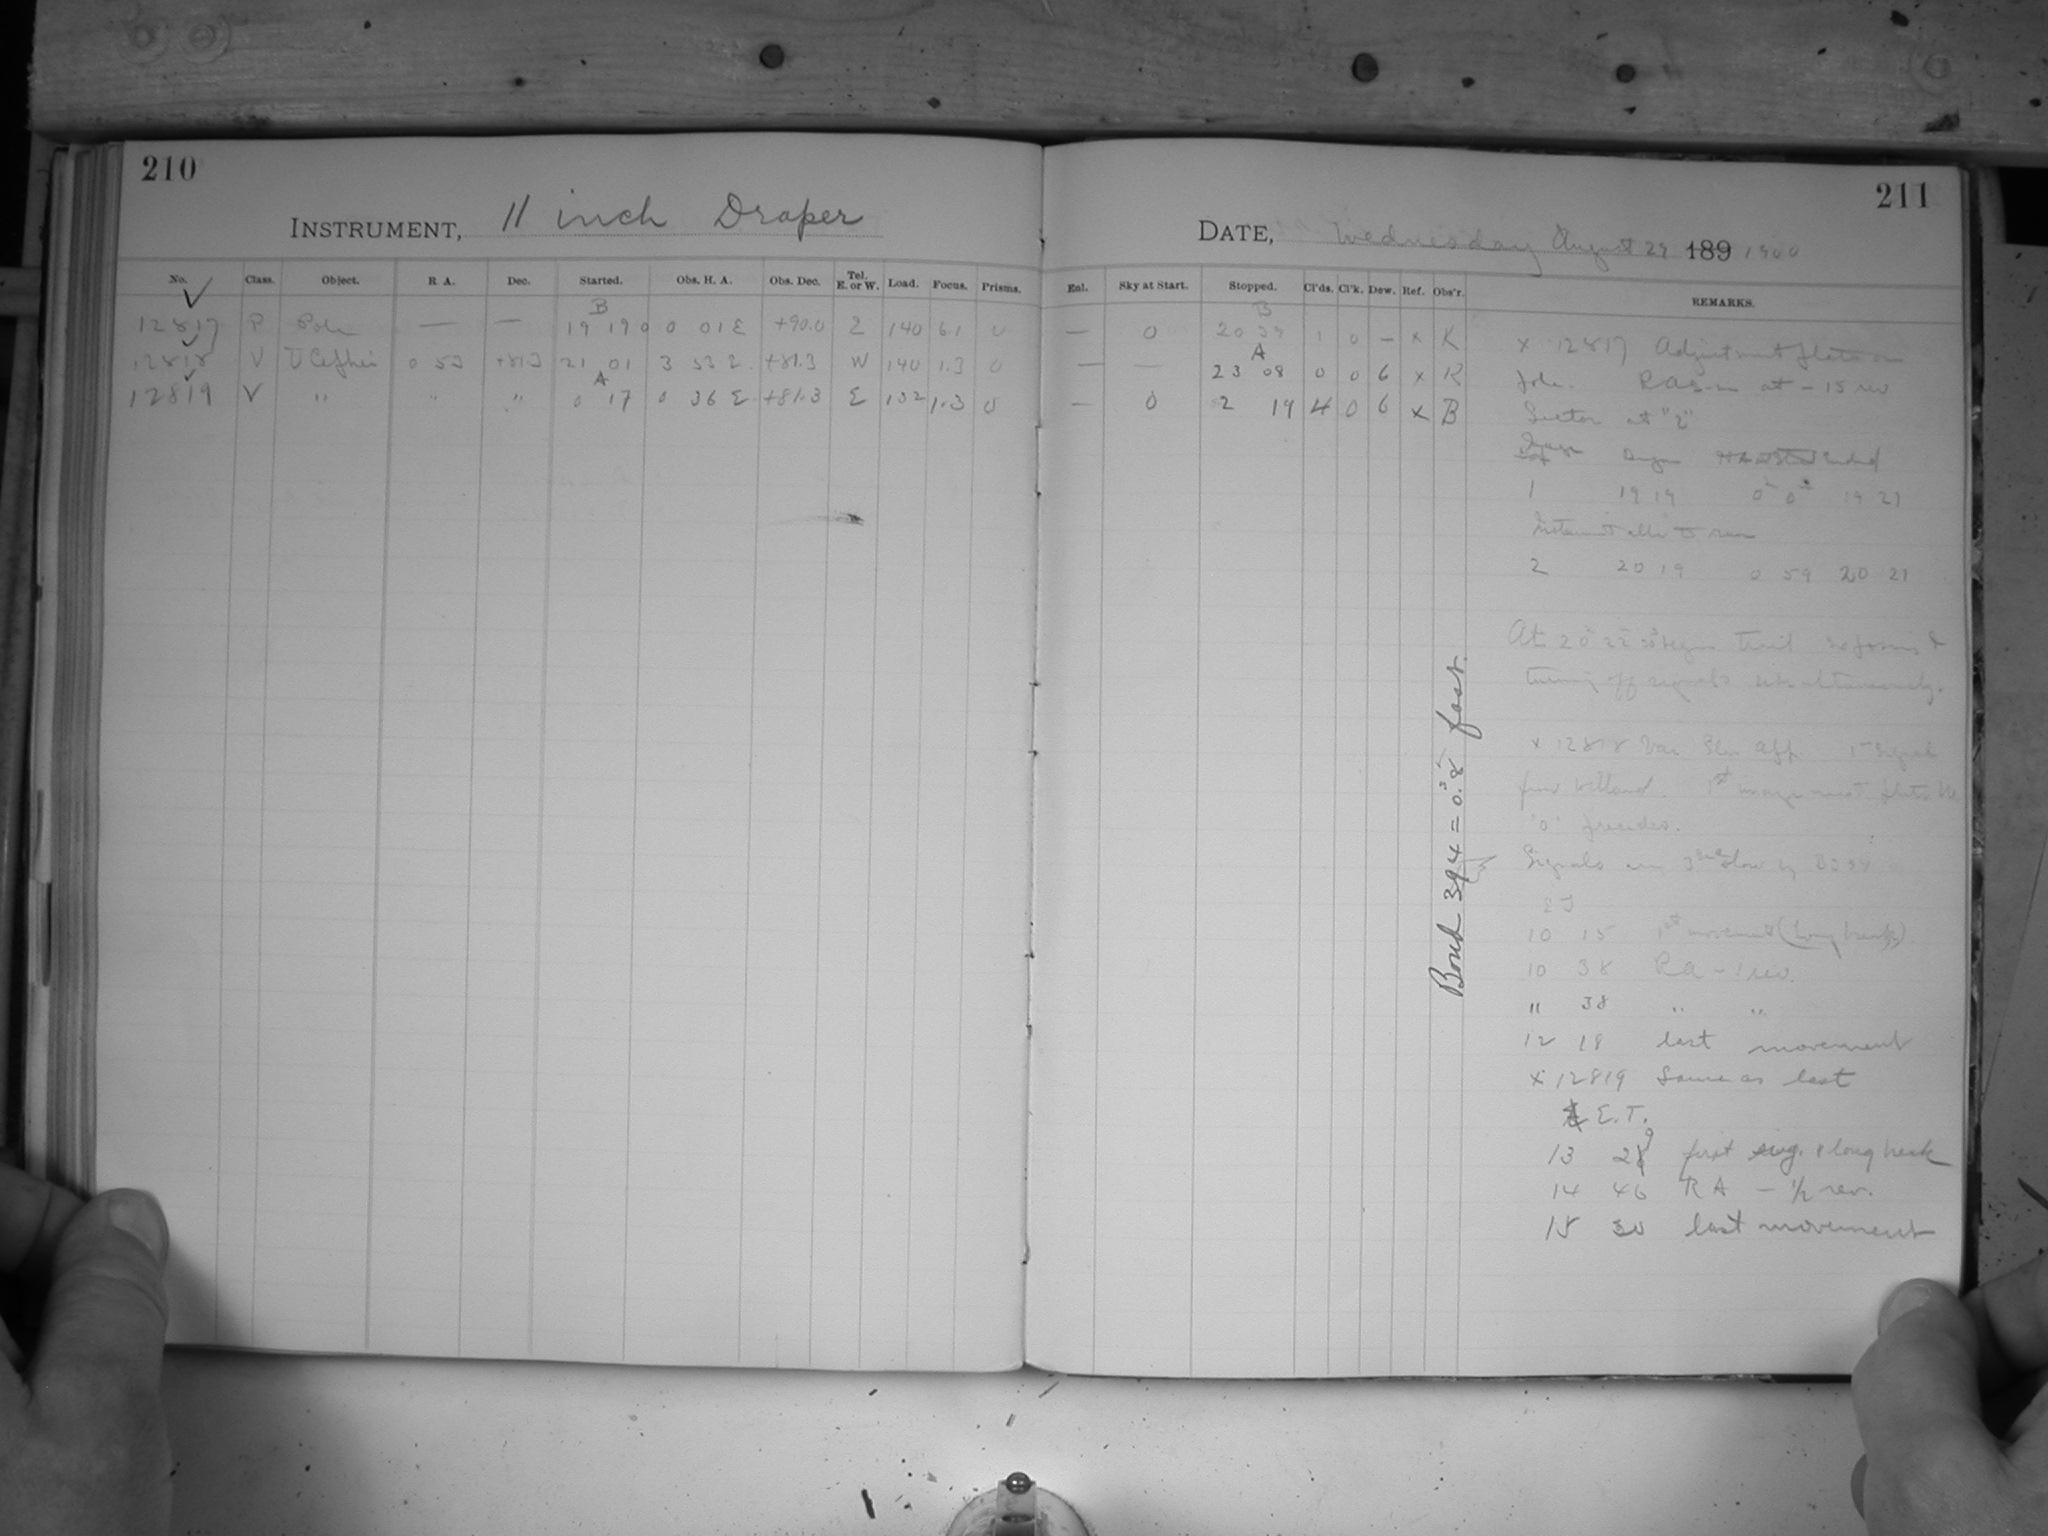 210
INSTRUMENT, 11 inch Draper
No. Class. Object. R A. Dec. Started. Obs. H. A. Obs. Dec. Tel. E. or W. Load. Focus. Prisms.
B
12817 P Pole — — 19 19 0 0 01 E +90.0 E 140 6.1 0
12818 V U Cephei 0 53 +81.3 21 01 3 53 E +81.3 W 140 1.3 0
A
12819 V " " " 0 17 0 36 E +81.3 E 132 1.3 0
211
DATE, Wednesday August 29 189 1900
Enl. Sky at Start. Stopped. Cl'ds. Cl'k. Dew. Ref. Obs'r. REMARKS.
B
— 0 20 1 0 — x K x 12817 Adjustment plate on
A
— — 23 08 0 0 6 x K Pole. at - 15 rev
— 0 2 19 4 0 6 x B Sector at "2"
Image
1 19 19 0 0 19 21
2 20 19 0 59 20 21
At 20 22 begin trail
turning off signals simultaneously.
x 12818 Var. Star App. 1 Signal
from Willand. 1st image next plate No
"0" precedes.
Signals are 3 sec slow by
E T
10 15 1st movement (Long break)
10 38 RA - 1 rev.
" 38 " "
12 18 last movement
x 12819 Same as last
E. T.
13 first sig. & long break
14 46 R A - 1/2 rev.
15 30 last movement
Bond 394 = 0.8 s fast.